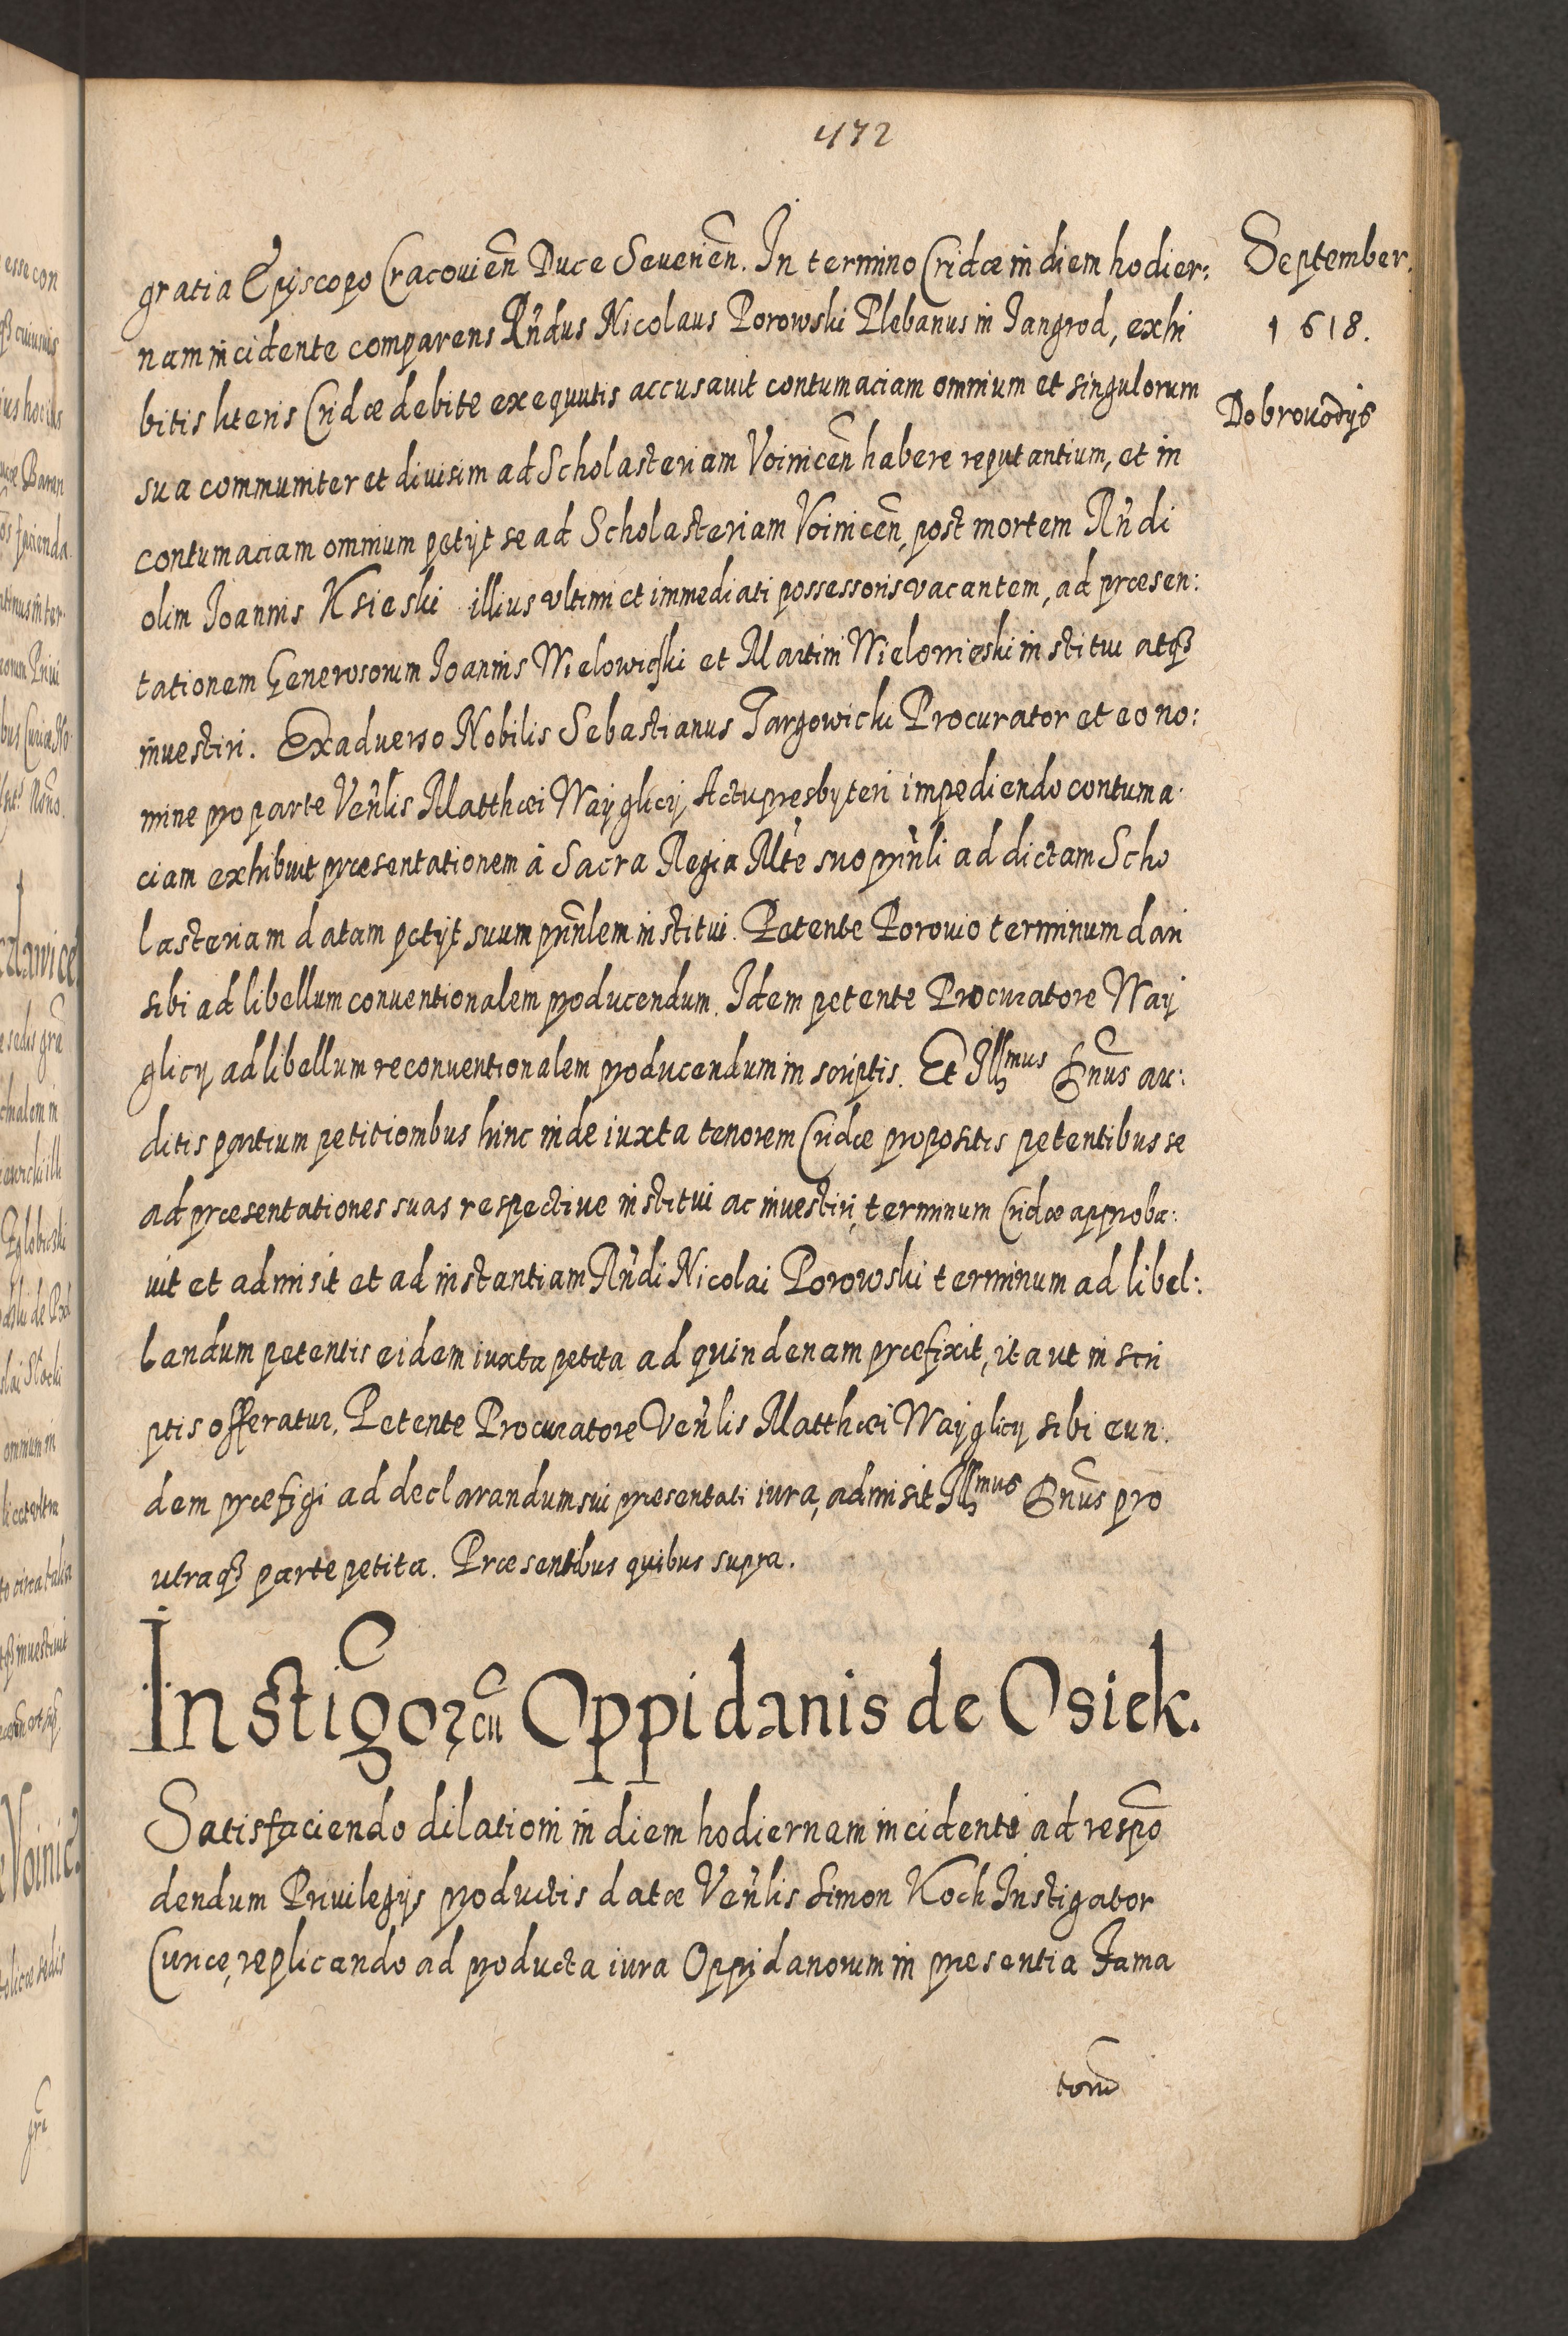 472
September.
1618.
Dobrovodys
gratia Episcopo Cracovieñ Duce Severieñ. In termino Cridæ in diem hodier:
nam incidente comparens Rñdus Nicolaus Porowski Plebanus in Jangrod, exhi
bitis literis Cridæ debite exequutis accusavit contumaciam omnium et singulorum
sua communiter et divisim ad Scholasteriam Voiniceñ habere reputantium, et in
contumaciam omnium petijt se ad Scholasteriam Voiniceñ, post mortem Rñdi
olim Joannis Ksieski illius ultimi et immediati possessoris vacantem, ad præsen:
tationem Generosorum Joannis Wielowieski et Martini Wielowieski institui atq3
investiri. Ex adverso Nobilis Sebastianus Targowicki Procurator et eo no:
mine pro parte Veñlis Matthæi Wayglicy Actu presbyteri impediendo contuma:
ciam exhibuit præsentationem à Sacra Regia Mte suo pñnli ad dictam Scho
lasteriam datam petijt suum pñnlem institui. Petente Porowio terminum dari
sibi ad libellum conventionalem producendum. Idem petente Procuratore Way
glicy ad libellum reconventionalem producendum in scriptis. Et Illmus Dnus au:
ditis partium petitionibus hinc inde iuxta tenorem Cridæ propositis petentibus se
ad præsentationes suas respective institui ac investiri, terminum Cridæ approba:
vit et admisit et ad instantiam Rñdi Nicolai Porowski terminum ad libel:
landum petentis eidem iuxta petita ad quindenam præfixit, ita ut in scri
ptis offeratur. Petente Procuratore Veñlis Matthæi Wayglicy sibi eun:
dem præfigi ad declarandum sui presentati iura, admisit Illmus Dnus pro
utraq3 parte petita. Præsentibus quibus supra.
Instigoꝝ cũ Oppidanis de Osiek.
Satisfaciendo dilationi in diem hodiernam incidenti ad respõ
dendum Privilegijs productis datæ Veñlis Simon Koch Instigator
Curiæ, replicando ad producta iura Oppidanorum in presentia Fama
torũ